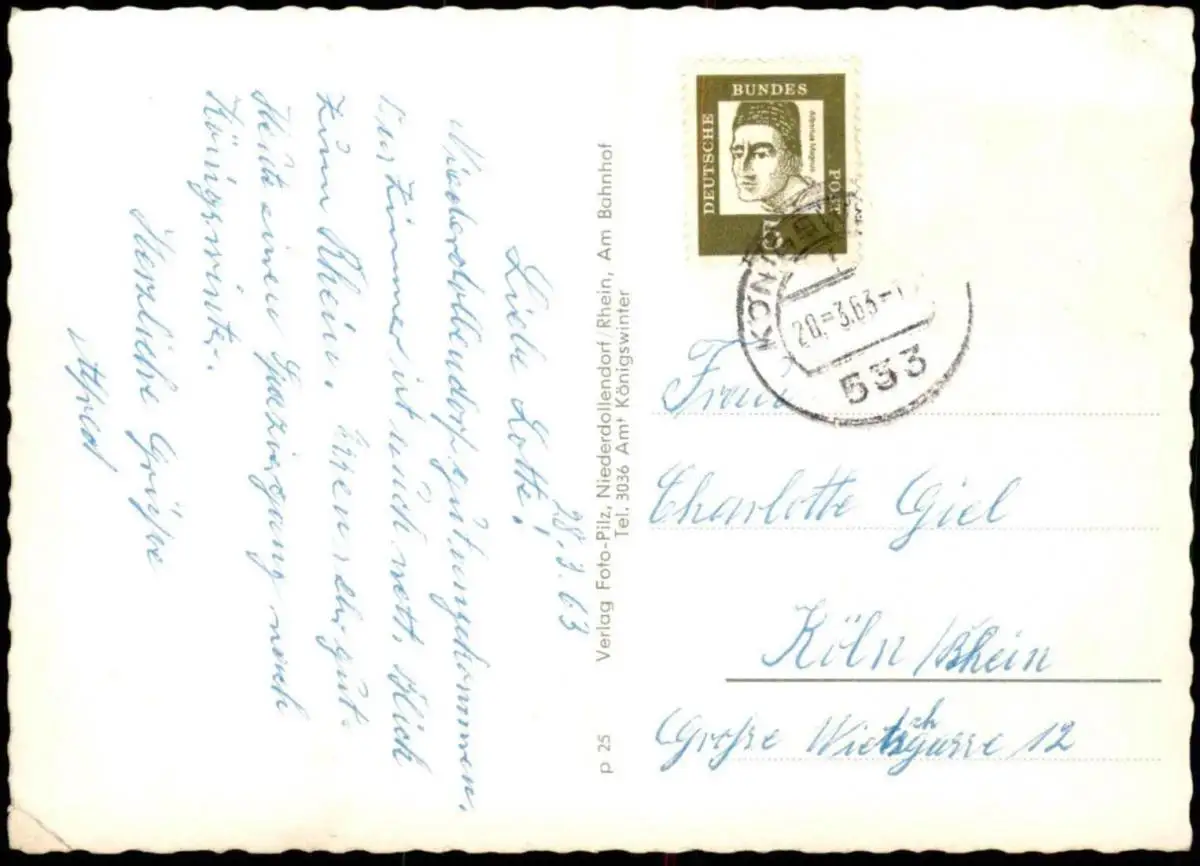 28.3.63
Liebe Lotte!
Niederdollendorf gut angekommen.
Das Zimmer ist auch nett. Blick
zum Rhein. Essen sehr gut.
Heute einen Spaziergang nach
Königswinter.
Herzliche Grüße
Alfred
p 25 Verlag Foto-Pilz, Niederdollendorf/Rhein, Am Bahnhof
Tel. 3036 Amt Königswinter
DEUTSCHE BUNDES POST
Albertus Magnus
KÖNIGSWINTER
-3.63-
533
Frau
Charlotte Giel
Köln/Rhein
Große 12